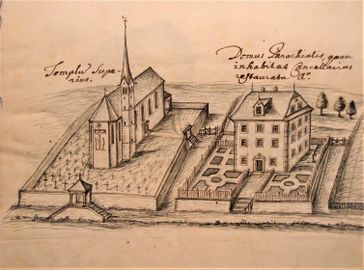 Templũ Supe-
rius.
Domus Parochialis, quam
inhabitat Cancellarius
restaurata Aº